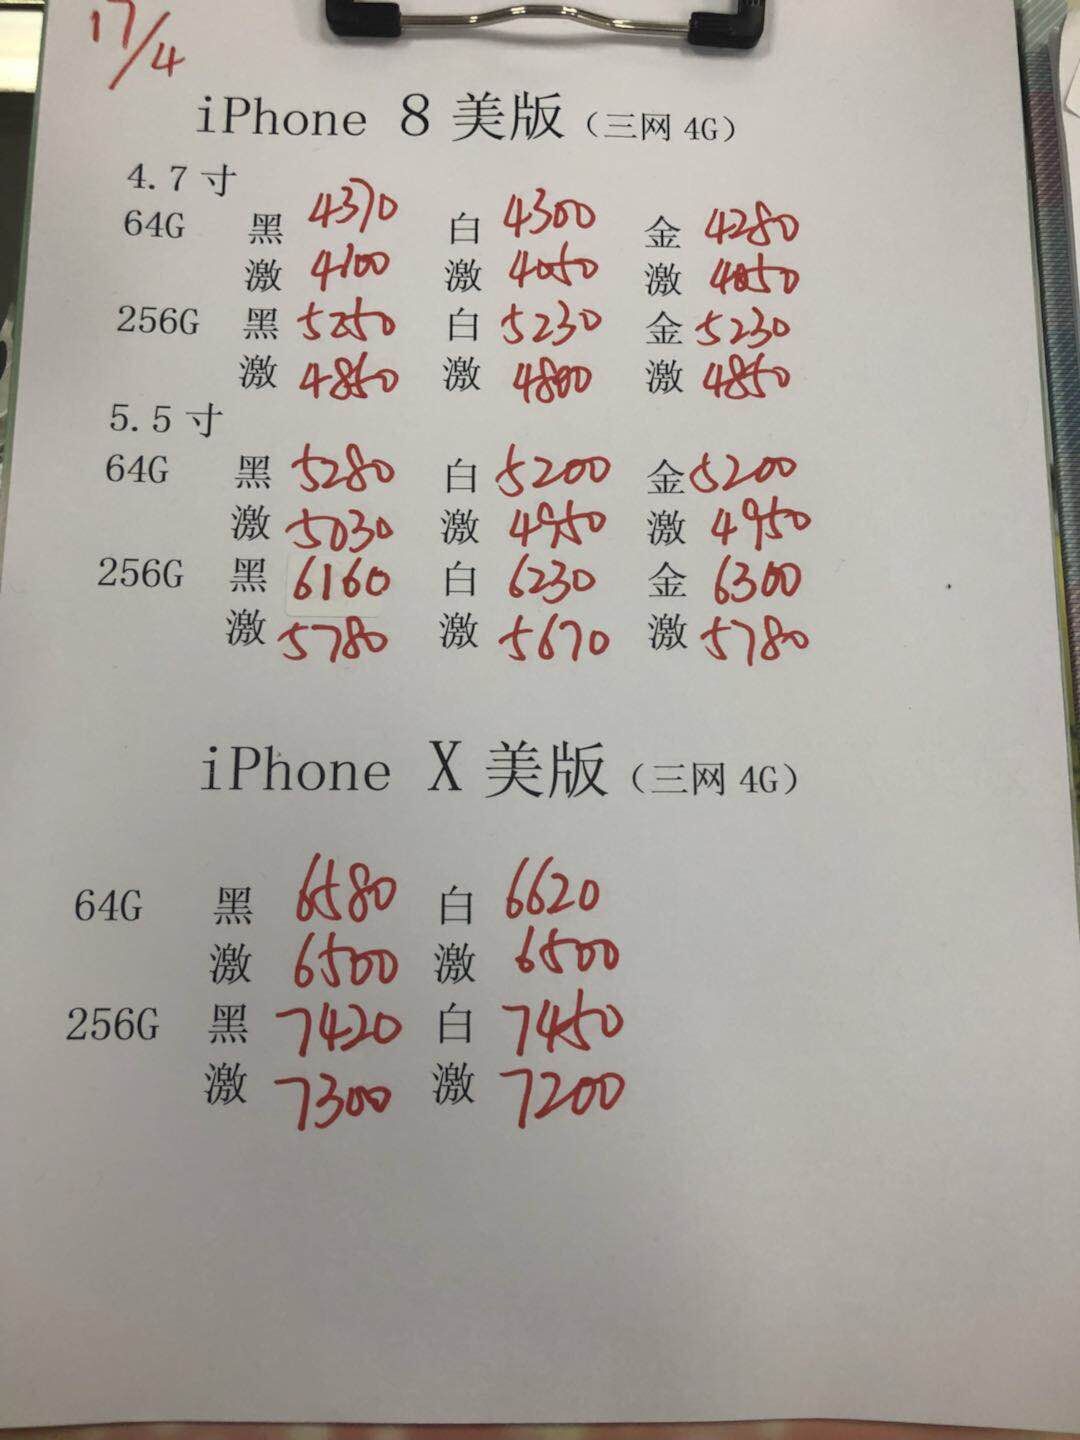 17/4
iPhone 8 美版（三网 4G）
4.7 寸
64G 黑 4370 白 4300 金 4280
激 4100 激 4050 激 4050
256G 黑 5250 白 5230 金 5230
激 4850 激 4800 激 4850
5.5 寸
64G 黑 5280 白 5200 金 5200
激 5030 激 4950 激 4950
256G 黑 6160 白 6230 金 6300
激 5780 激 5670 激 5780
iPhone X 美版（三网 4G）
64G 黑 6580 白 6620
激 6500 激 6500
256G 黑 7420 白 7450
激 7300 激 7200